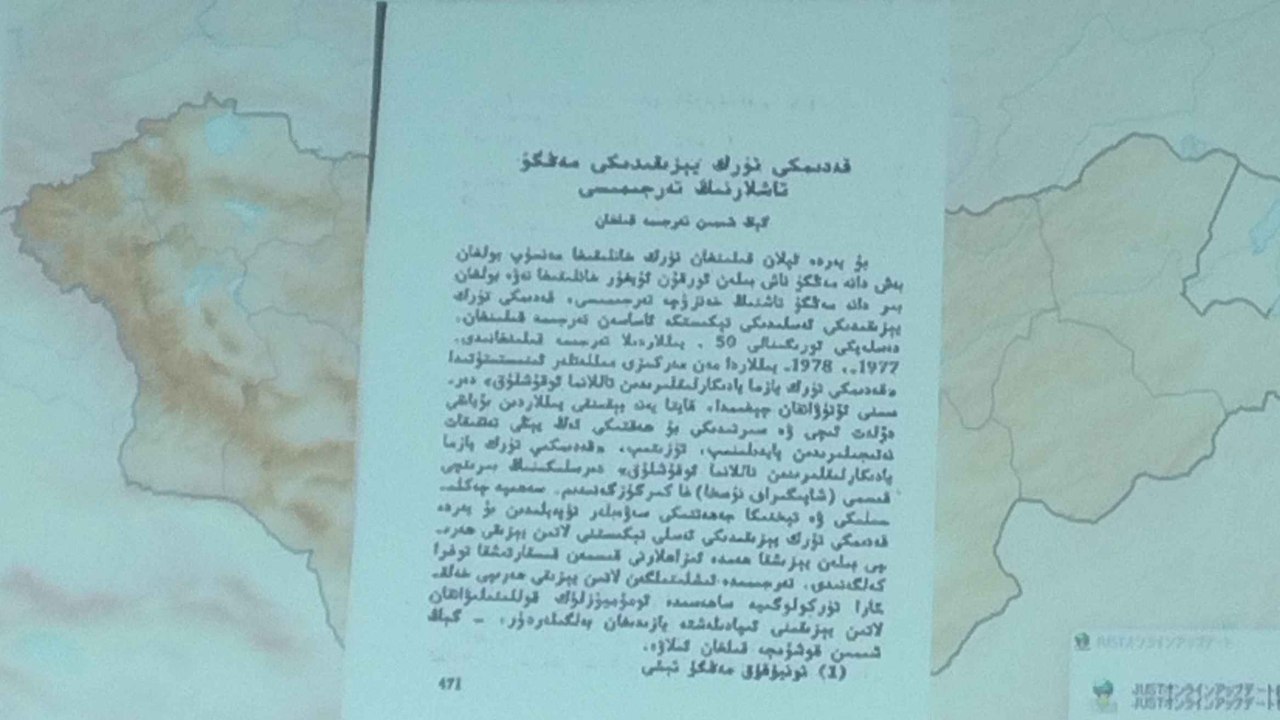 قەدىمكى تۈرك يېزىقىدىكى مەڭگۈ
تاشلارنىڭ تەرجىمىسى
گېڭ شىمىن تەرجىمە قىلغان
بۇ يەردە ئېلان قىلىنغان تۈرك خانلىقىغا مەنسۈپ بولغان
بەش دانە مەڭگۈ تاش بىلەن ئورقۇن ئۇيغۇر خانلىقىغا تەۋە بولغان
بىر دانە مەڭگۈ تاشنىڭ خەنزۇچە تەرجىمىسى، قەدىمكى تۈرك
يېزىقىدىكى ئەسلىدىكى تېكىستكە ئاساسەن تەرجىمە قىلىنغان.
دەسلەپكى ئورىگىنالى 50 ـ يىللاردىلا تەرجىمە قىلىنغانىدى.
1977ـ، 1978ـ يىللاردا مەن مەركىزى مىللەتلەر ئىنىستىتۇتىدا
«قەدىمكى تۈرك يازما يادىكارلىقلىرىدىن تاللانما ئوقۇشلۇق» دەر-
سىنى ئۆتۈۋاتقان چېغىمدا، قايتا يەنە يېقىنقى يىللاردىن بۇياقى
دۆلەت ئىچى ۋە سىرتىدىكى بۇ ھەقتىكى ئەڭ يېڭى تەتقىقات
نەتىجىلىرىدىن پايدىلىنىپ، تۈزىتىپ، «قەدىمكى تۈرك يازما
يادىكارلىقلىرىدىن تاللانما ئوقۇشلۇق» دەرسلىكىنىڭ بىرىنچى
قىسمى (شاپىگىراف نۇسخا) غا كىرگۈزگەنىدىم. سەھىپە چەكلى-
مىلىكى ۋە تېخنىكا جەھەتتىكى سەۋەبلەر تۈپەيلىدىن بۇ يەردە
قەدىمكى تۈرك يېزىقىدىكى ئەسلى تېكىستنى لاتىن يېزىقى ھەرى-
پى بىلەن يېزىشقا ھەمدە ئىزاھلارنى قىسمەن قىسقارتىشقا توغرا
كەلگەنىدى. تەرجىمىدە ئىشلىتىلگەن لاتىن يېزىقى ھەرىپى خەلق-
ئارا تۈركولوگىيە ساھەسىدە ئومۇميۈزلۈك قوللىنىلىۋاتقان
لاتىن يېزىقىنى ئىپادىلەشتە يازىدىغان بەلگىلەردۇر، ــ گېڭ
شىمىن قوشۇمچە قىلغان ئىلاۋە.
(1) تونيۇقۇق مەڭگۈ تېشى
471
JUSTオンラインアップデート
JUSTオンラインアップデート
JUSTオンラインアップデート